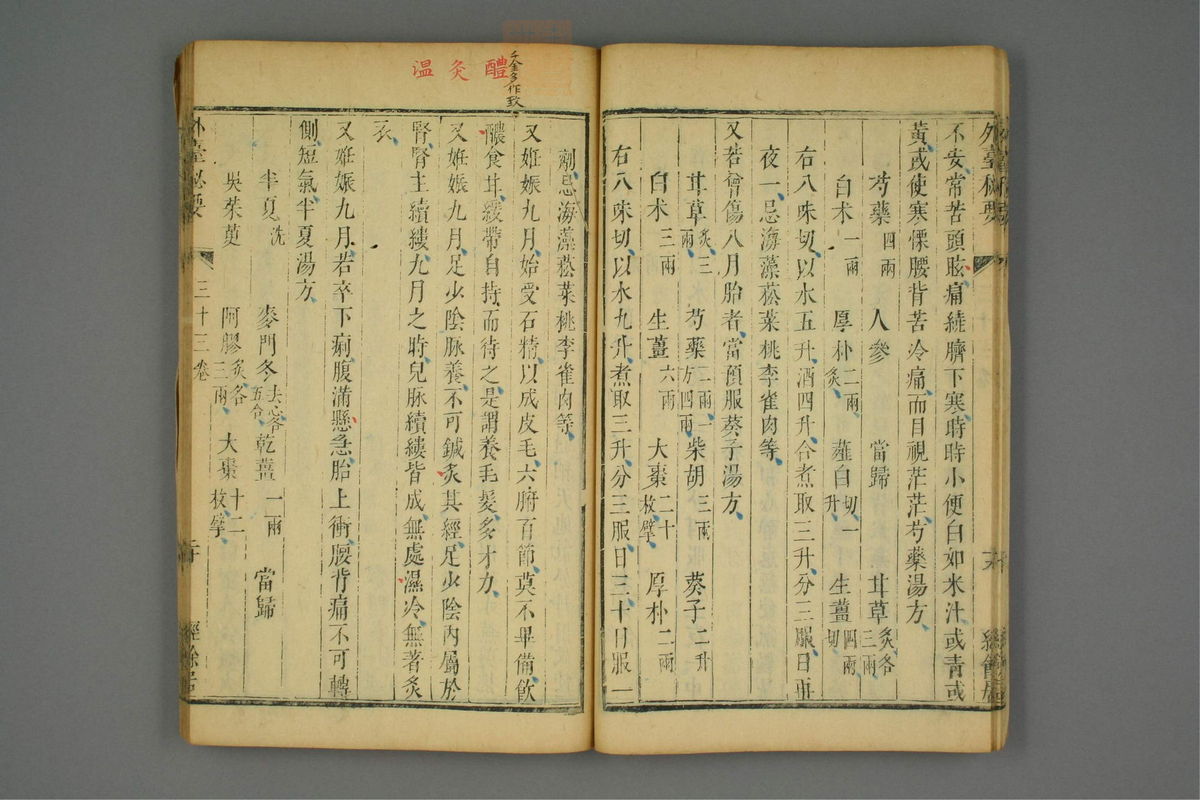 外臺秘要
經餘居
不安常苦頭眩痛繞臍下寒時時小便白如米汁或青或
黃或使寒慄腰背苦冷痛而目視茫茫芍藥湯方
芍藥四兩 人參 當歸 甘草炙各三兩
白术一兩 厚朴二兩炙 薤白切一升 生薑四兩切
右八味切以水五升酒四升合煮取三升分三服日再
夜一忌海藻菘菜桃李雀肉等
又若曾傷八月胎者當預服葵子湯方
甘草炙三兩 芍藥二兩一方四兩 柴胡三兩 葵子二升
白术三兩 生薑六兩 大棗二十枚擘 厚朴二兩
右八味切以水九升煮取三升分三服日三十日服一
千金多作致
醴 灸 温
劑忌海藻菘菜桃李雀肉等
又妊娠九月始受石精以成皮毛六腑百節莫不畢備飲
醲食甘緩帶自持而待之是謂養毛髮多才力
又妊娠九月足少陰脉養不可鍼灸其經足少陰內屬於
腎腎主續縷九月之時兒脉續縷皆成無處濕冷無著炙
衣
又妊娠九月若卒下痢腹滿懸急胎上衝腰背痛不可轉
側短氣半夏湯方
半夏洗 麥門冬去心各五合 乾薑一兩 當歸
吳茱萸 阿膠炙各三兩 大棗十二枚擘
外臺秘要 三十三卷 二十 經餘居